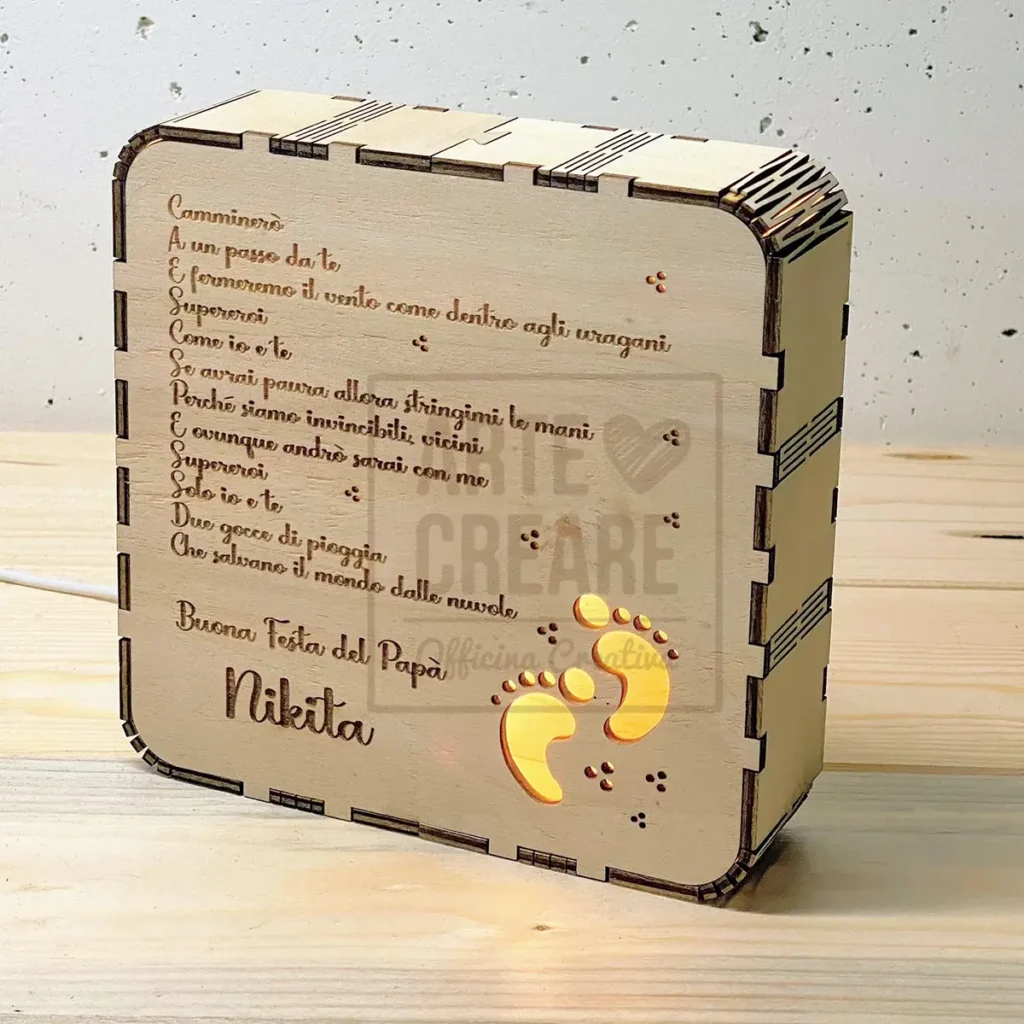 Camminerò
A un passo da te
E fermeremo il vento come dentro agli uragani
Supereroi
Come io e te
Se avrai paura allora stringimi le mani
Perché siamo invincibili, vicini
E ovunque andrò sarai con me
Supereroi
Solo io e te
Due gocce di pioggia
Che salvano il mondo dalle nuvole
Buona Festa del Papà
Nikita
ARTE
CREARE
Officina Creativa